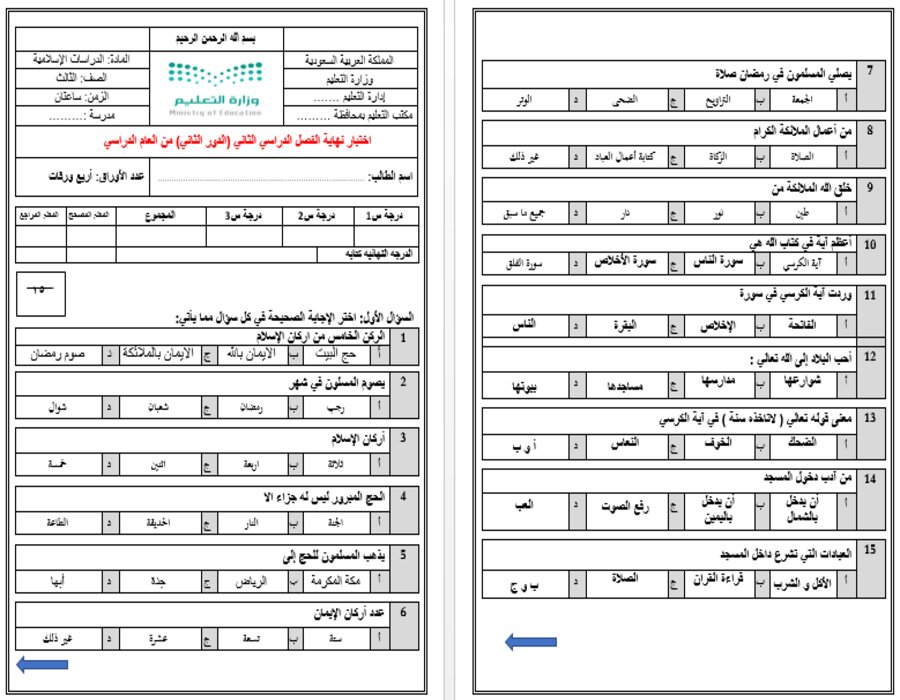 بسم الله الرحمن الرحيم
المملكة العربية السعودية
وزارة التعليم
إدارة التعليم ........
مكتب التعليم بمحافظة .........
وزارة التعليم
Ministry of Education
المادة: الدراسات الإسلامية
الصف: الثالث
الزمن: ساعتان
مدرسة :..........
اختبار نهاية الفصل الدراسي الثاني (الدور الثاني) من العام الدراسي
اسم الطالب: ........................ عدد الأوراق: أربع ورقات
درجة س1 درجة س2 درجة س3 المجموع المعلم المصحح المعلم المراجع
الدرجه النهائيه كتابه
١٥
السؤال الأول: اختر الإجابة الصحيحة في كل سؤال مما يأتي:
1 الركن الخامس من اركان الإسلام
أ حج البيت ب الايمان بالله ج الايمان بالملائكة د صوم رمضان
2 يصوم المسلون في شهر
أ رجب ب رمضان ج شعبان د شوال
3 أركان الإسلام
أ ثلاثة ب اربعة ج اثنين د خمسة
4 الحج المبرور ليس له جزاء الا
أ الجنة ب النار ج الحديقة د الطاعة
5 يذهب المسلمون للحج إلى
أ مكة المكرمة ب الرياض ج جدة د أبها
6 عدد أركان الإيمان
أ ستة ب تسعة ج عشرة د غير ذلك
7 يصلي المسلمون في رمضان صلاة
أ الجمعة ب التراويح ج الضحى د الوتر
8 من أعمال الملائكة الكرام
أ الصلاة ب الزكاة ج كتابة أعمال العباد د غير ذلك
9 خلق الله الملائكة من
أ طين ب نور ج نار د جميع ما سبق
10 أعظم آية في كتاب الله هي
أ آية الكرسي ب سورة الناس ج سورة الأخلاص د سورة الفلق
11 وردت آية الكرسي في سورة
أ الفاتحة ب الإخلاص ج البقرة د الناس
12 أحب البلاد إلى الله تعالي :
أ شوارعها ب مدارسها ج مساجدها د بيوتها
13 معنى قوله تعالي ( لاتاخذه سنة ) في آية الكرسي
أ الضحك ب الخوف ج النعاس د أ و ب
14 من آدب دخول المسجد
أ أن يدخل بالشمال ب أن يدخل باليمين ج رفع الصوت د العب
15 العبادات التي تشرع داخل المسجد
أ الأكل و الشرب ب قراءة القران ج الصلاة د ب و ج